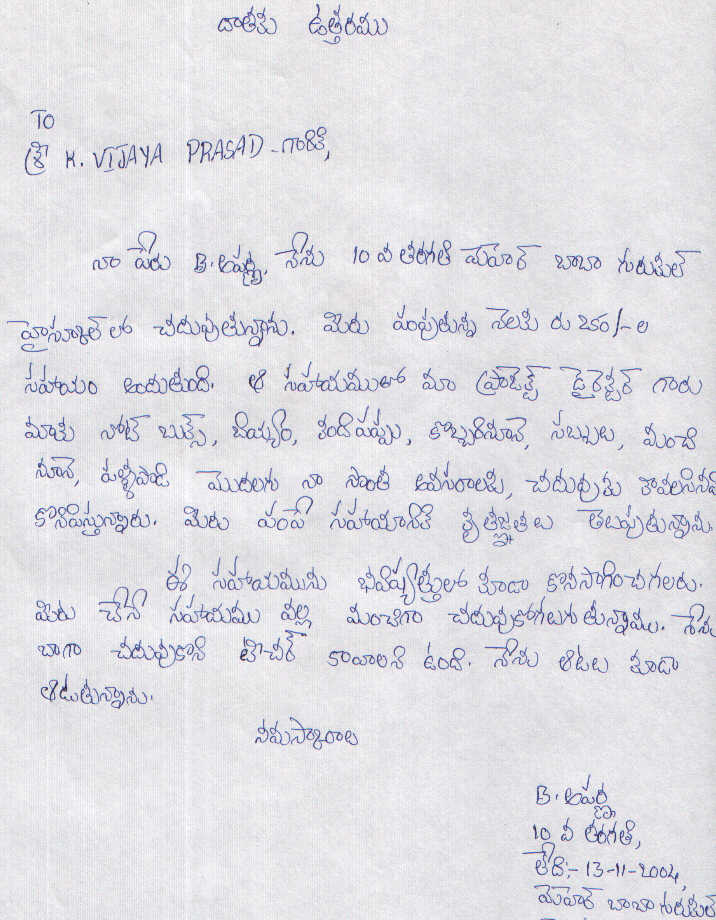 దాతకు ఉత్తరము
TO
శ్రీ K. VIJAYA PRASAD - గారికి,
నా పేరు B. అపర్ణ, నేను 10 వ తరగతి మెహెర్ బాబా గురుకుల్
హైస్కూల్ లో చదువుతున్నాను. మీరు పంపుతున్న నెలకు రు 250/- ల
సహాయం అందుతుంది. ఆ సహాయములో మా ప్రాజెక్ట్ డైరెక్టర్ గారు
మాకు నోట్ బుక్స్, బియ్యం, కందిపప్పు, కొబ్బరినూనె, సబ్బులు, మంచి
నూనె, పళ్ళపొడి మొదలగు నా సొంత అవసరాలకు, చదువుకు కావలసినవి
కొనిపిస్తున్నారు. మీరు పంపే సహాయానికి కృతజ్ఞతలు తెలుపుతున్నాము.
ఈ సహాయమును భవిష్యత్తులో కూడా కొనసాగించగలరు.
మీరు చేసే సహాయము వల్ల మంచిగా చదువుకోగలుగుతున్నాము. నేను
బాగా చదువుకొని టీచర్ కావాలని ఉంది. నేను ఆటలు కూడా
ఆడుతున్నాను.
నమస్కారాలు
B. అపర్ణ
10 వ తరగతి,
తేది:- 13-11-2004,
మెహెర్ బాబా గురుకుల్